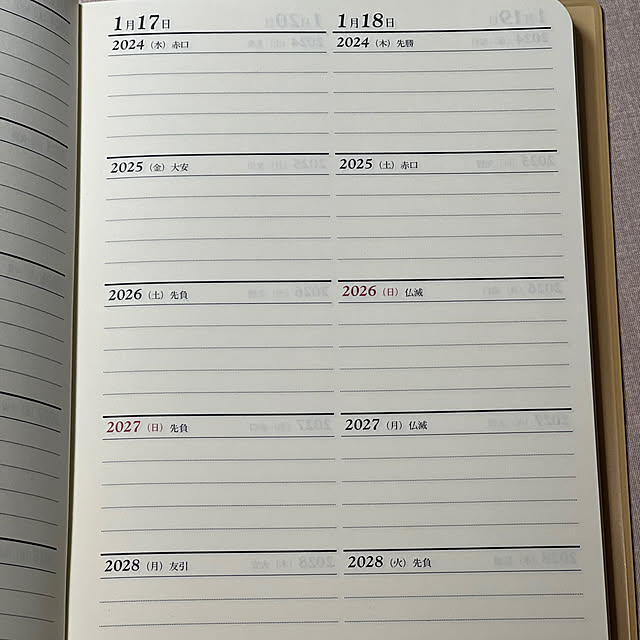 1月17日
2024（水）赤口
2025（金）大安
2026（土）先負
2027（日）先負
2028（月）友引
1月18日
2024（木）先勝
2025（土）赤口
2026（日）仏滅
2027（月）仏滅
2028（火）先負